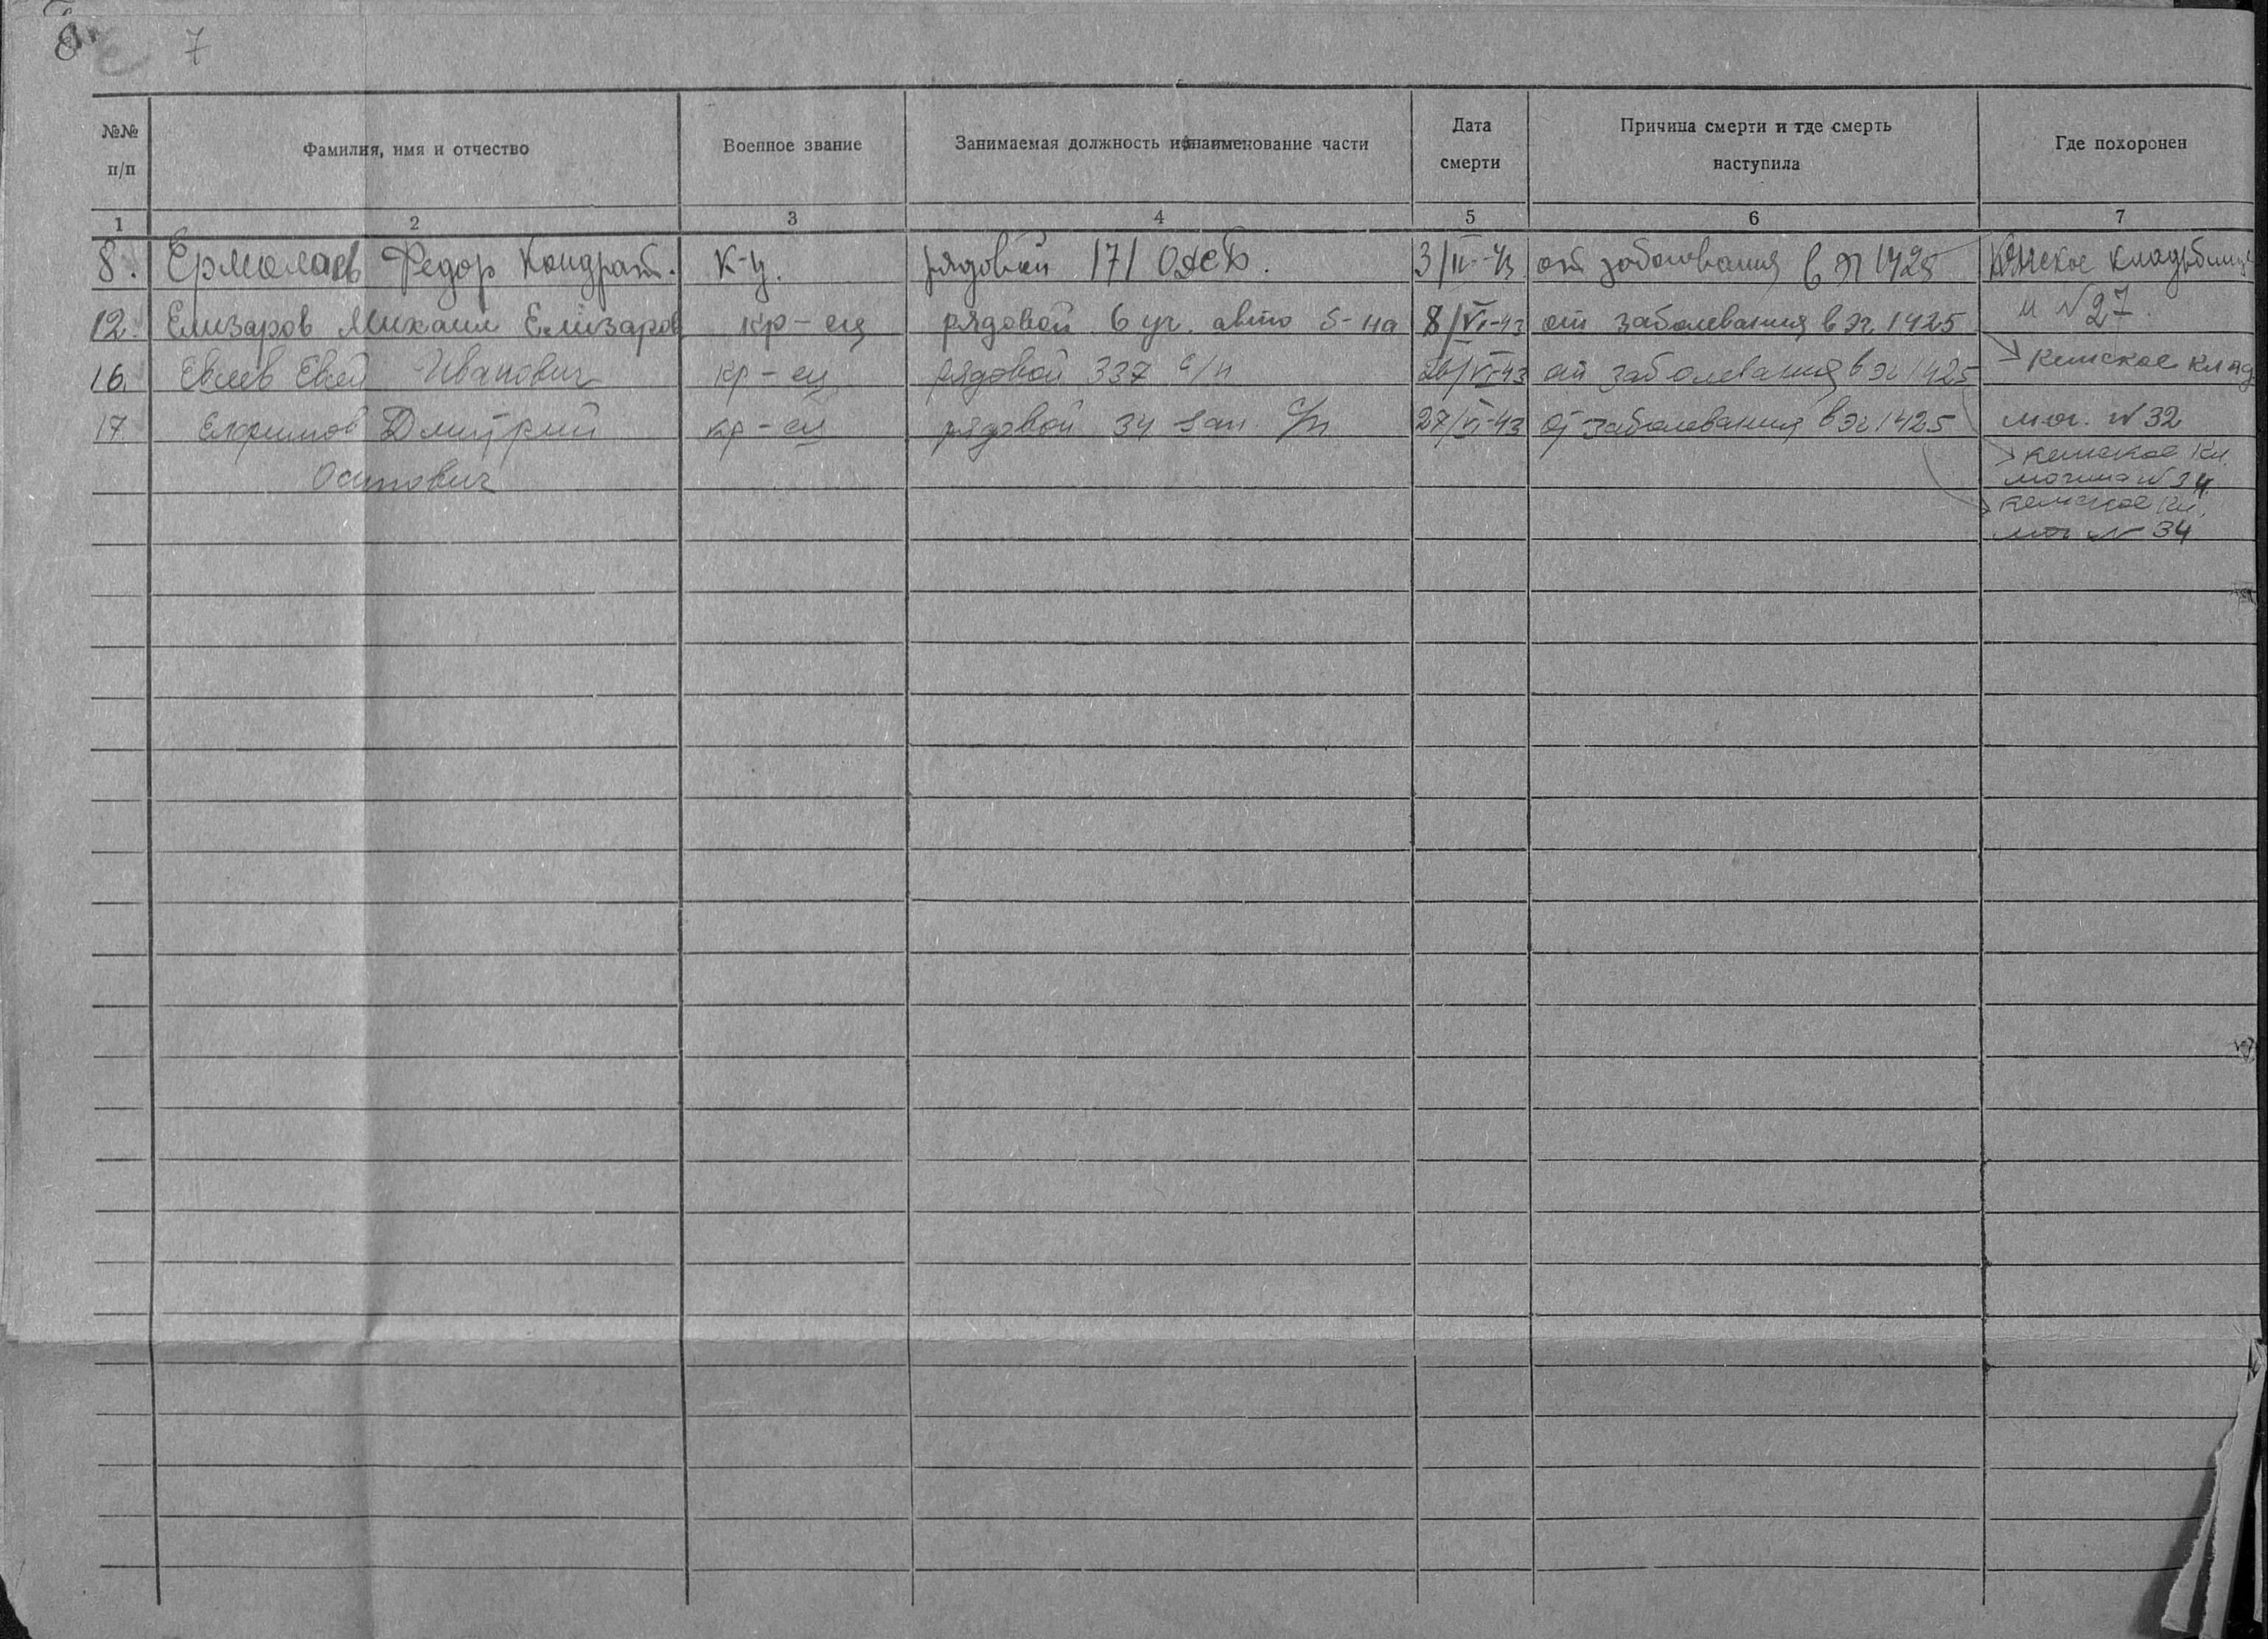 7
№№ п/п
Фамилия, имя и отчество
Военное звание
Занимаемая должность и наименование части
Дата смерти
Причина смерти и где смерть наступила
Где похоронен
1 2 3 4 5 6 7
8. Ермолаев Федор Кондрат. к-ц. рядовой 171 3/II-43 от заболевания в эг 1425 Кемское кладбище
м №27.
12. Елизаров Михаил Елизаров кр-ец рядовой 6 уч. авто б-на 8/VI-43 от заболевания в эг. 1425 Кемское клад
мог. №32
16. Евсев Иванович кр-ец рядовой 337 с/п 26/VI-43 от заболевания в эг 1425 кемское кл.
могила №34
17. Ефимов Дмитрий кр-ец рядовой 34 зап. с/п 27/VI-43 от заболевания в эг 1425 кемское кл.
Осипович мог №34